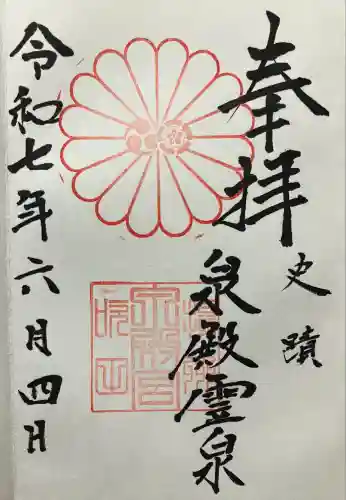 奉拝
史蹟
泉殿霊泉
令和七年六月四日